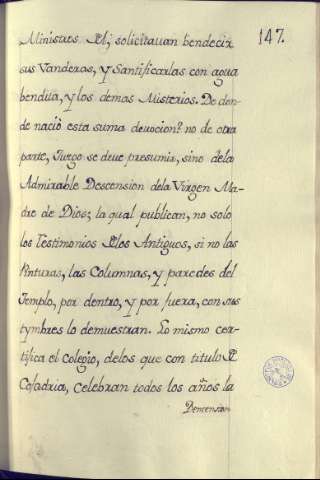 147.
Ministros Dl; solicitauan bendecir
sus Vanderas, y Santificarlas con agua
bendita, y los demas Misterios. De don-
de nació esta suma deuocion? no de otra
parte, Juzgo se deve presumir, sino dela
Admirable Descension dela Virgen Ma-
dre de Dios; la qual publican, no solo
los Testimonios Dlos Antiguos, si no las
Pinturas, las Columnas, y paredes del
Templo, por dentro, y por fuera, con sus
tymbres lo demuestran. Lo mismo cer-
tifica el Colegio, delos que con titulo D
Cofadria, Celebran todos los años la
Descension